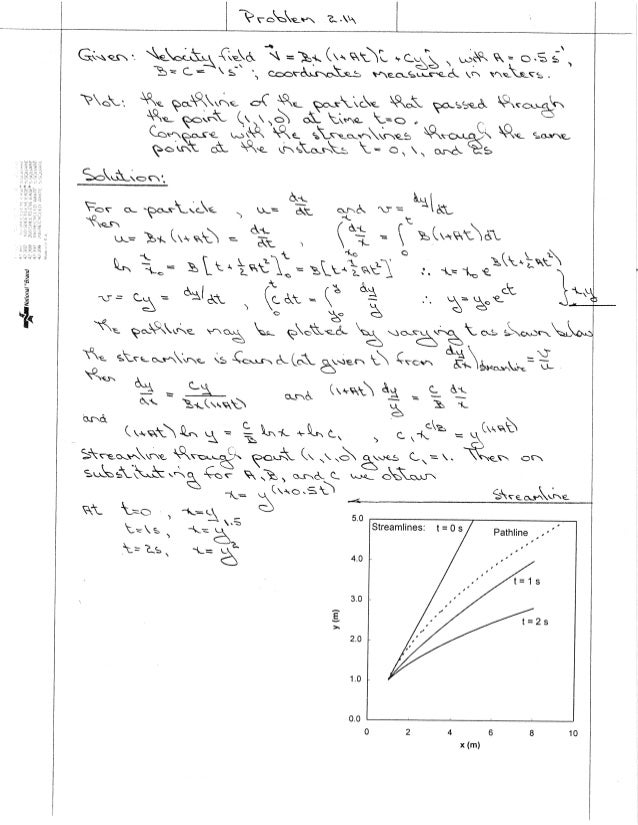 Problem 2.14
Given: Velocity field V⃗ = Bx(1+At)î + Cyĵ, with A = 0.5 s⁻¹,
B = C = 1 s⁻¹; coordinates measured in meters.
Plot: the pathline of the particle that passed through
the point (1,1,0) at time t=0.
Compare with the streamlines through the same
point at the instants t = 0, 1, and 2s
Solution:
For a particle, u = dx/dt and v = dy/dt
Then
u = Bx(1+At) = dx/dt, ∫_{x₀}^{x} dx/x = ∫_{0}^{t} B(1+At)dt
ln x/x₀ = B[t+½At²]₀ᵗ = B[t+½At²] ∴ x = x₀e^{B(t+½At²)}
v = Cy = dy/dt, ∫_{0}^{t} C dt = ∫_{y₀}^{y} dy/y ∴ y = y₀e^{Ct} } x,y
The pathline may be plotted by varying t as shown below
The streamline is found (at given t) from dy/dx)streamline = v/u
Then
dy/dx = Cy/Bx(1+At) and (1+At) dy/y = C/B dx/x
and
(1+At) ln y = C/B ln x + ln c₁, c₁x^{C/B} = y^{(1+At)}
Streamline through point (1,1,0) gives C₁ = 1. Then on
substituting for A, B, and C we obtain
x = y^{(1+0.5t)} Streamline
At t=0, x=y
t=1s, x=y^{1.5}
t=2s, x=y²
5.0
Streamlines: t = 0 s
Pathline
4.0
t = 1 s
3.0
t = 2 s
y (m)
2.0
1.0
0.0
0 2 4 6 8 10
x (m)
National®Brand